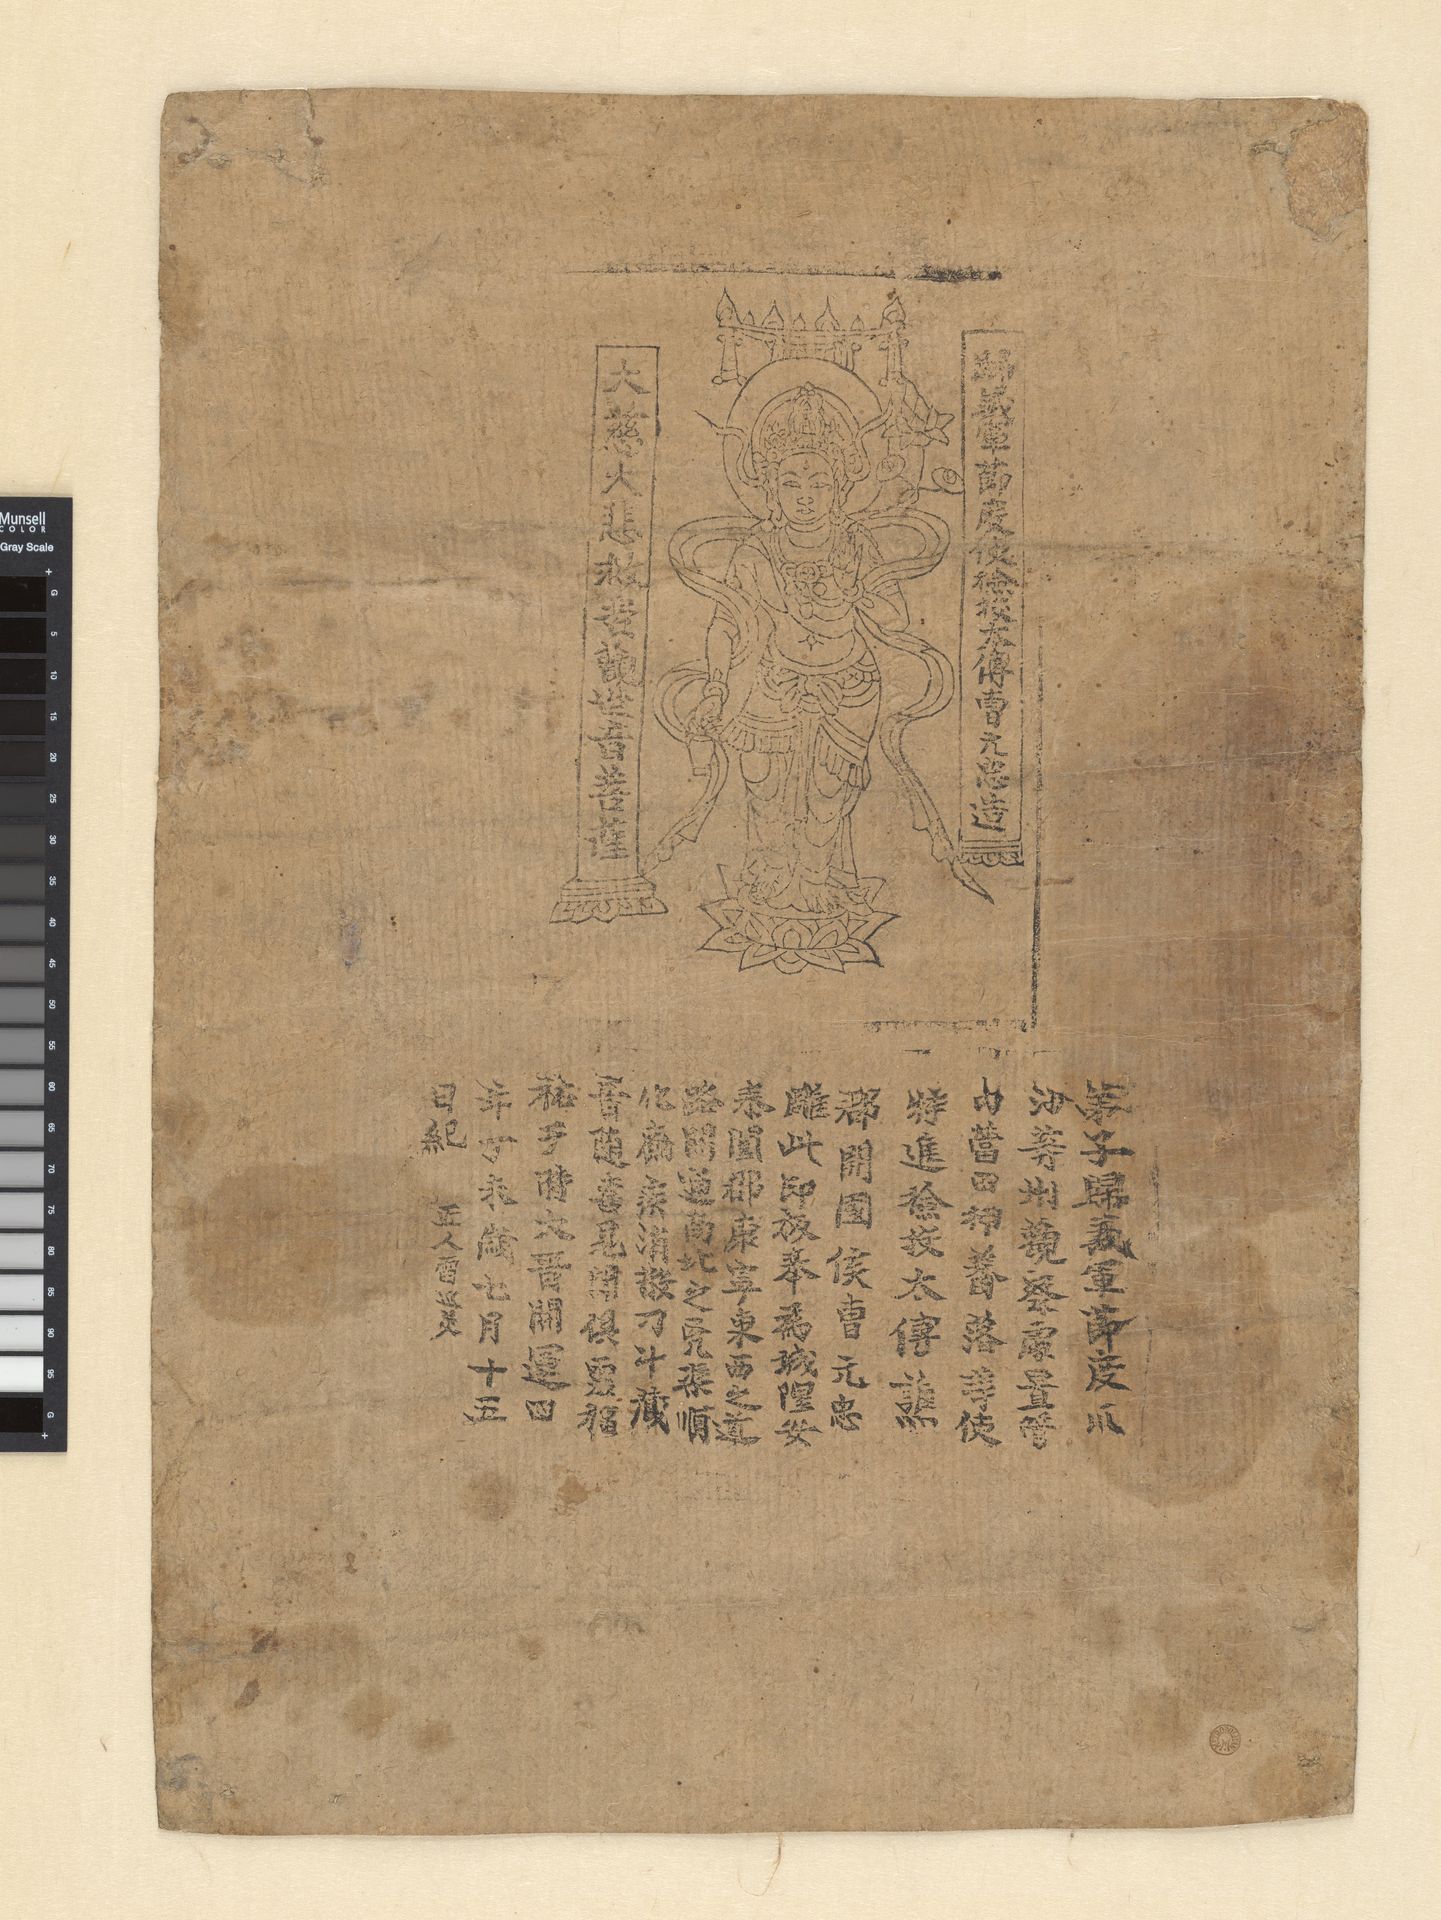 歸義軍節度使檢校太傅曹元忠造
大慈大悲救苦觀世音菩薩
弟子歸義軍節度瓜
沙等州觀察處置管
內營田押蕃落等使
特進檢校太傅譙
郡開國侯曹元忠
雕此印板奉為城隍安
泰闔郡康寧東西之道
路開通南北之兇渠順
化癘疾消散刁斗藏
音隨喜見聞俱霑福
祐于時大晉開運四
年丁未歲七月十五
日紀 匠人雷延美
Munsell
COLOR
Gray Scale
G
5
10
15
20
25
30
35
40
45
50
55
60
65
70
75
80
85
90
95
G